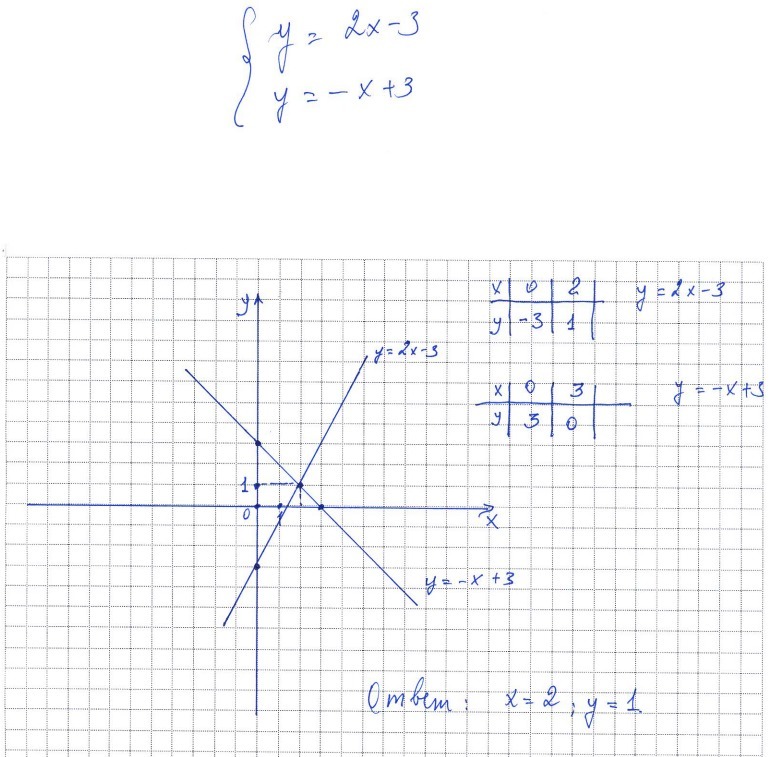 y = 2x-3
y = -x+3
x 0 2
y -3 1
y = 2x-3
y
y=2x-3
x 0 3
y 3 0
y = -x+3
1
0
1
x
y = -x +3
Ответ: x = 2 ; y = 1